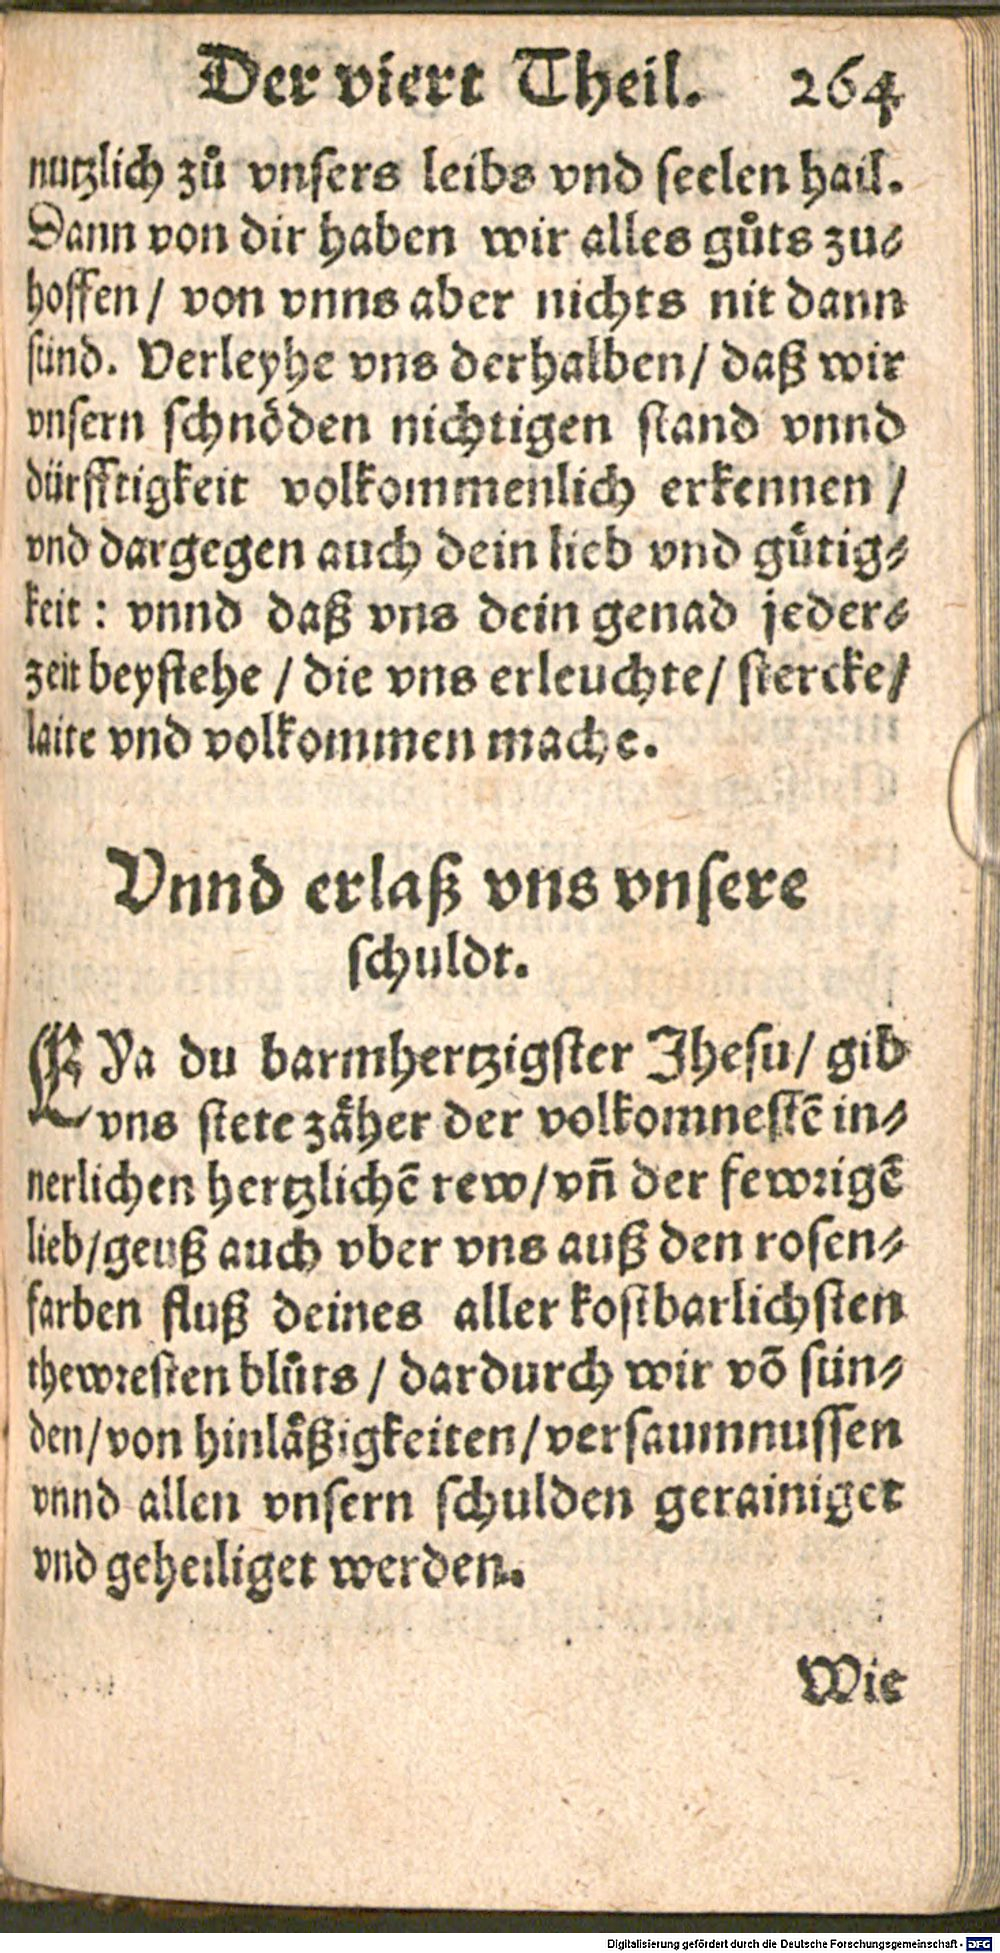 Der viert Theil. 264
nutzlich zů vnsers leibs vnd seelen hail.
Dann von dir haben wir alles gůts zu⸗
hoffen / von vnns aber nichts nit dann
sünd. Verleyhe vns derhalben / daß wir
vnsern schnöden nichtigen stand vnnd
dürfftigkeit volkommenlich erkennen /
vnd dargegen auch dein lieb vnd guͤtig⸗
keit : vnnd daß vns dein genad jeder⸗
zeit beystehe / die vns erleuchte / stercke /
laite vnd volkommen mache.
Vnnd erlaß vns vnsere
schuldt.
EYa du barmhertzigster Jhesu / gib
vns stete zaͤher der volkomnestē in⸗
nerlichen hertzlichē rew / vn̄ der fewrigē
lieb / geuß auch vber vns auß den rosen⸗
farben fluß deines aller kostbarlichsten
thewresten blůts / dardurch wir võ sün⸗
den / von hinlaͤßigkeiten / versaumnussen
vnnd allen vnsern schulden gerainiget
vnd geheiliget werden.
Wie
Digitalisierung gefördert durch die Deutsche Forschungsgemeinschaft - DFG